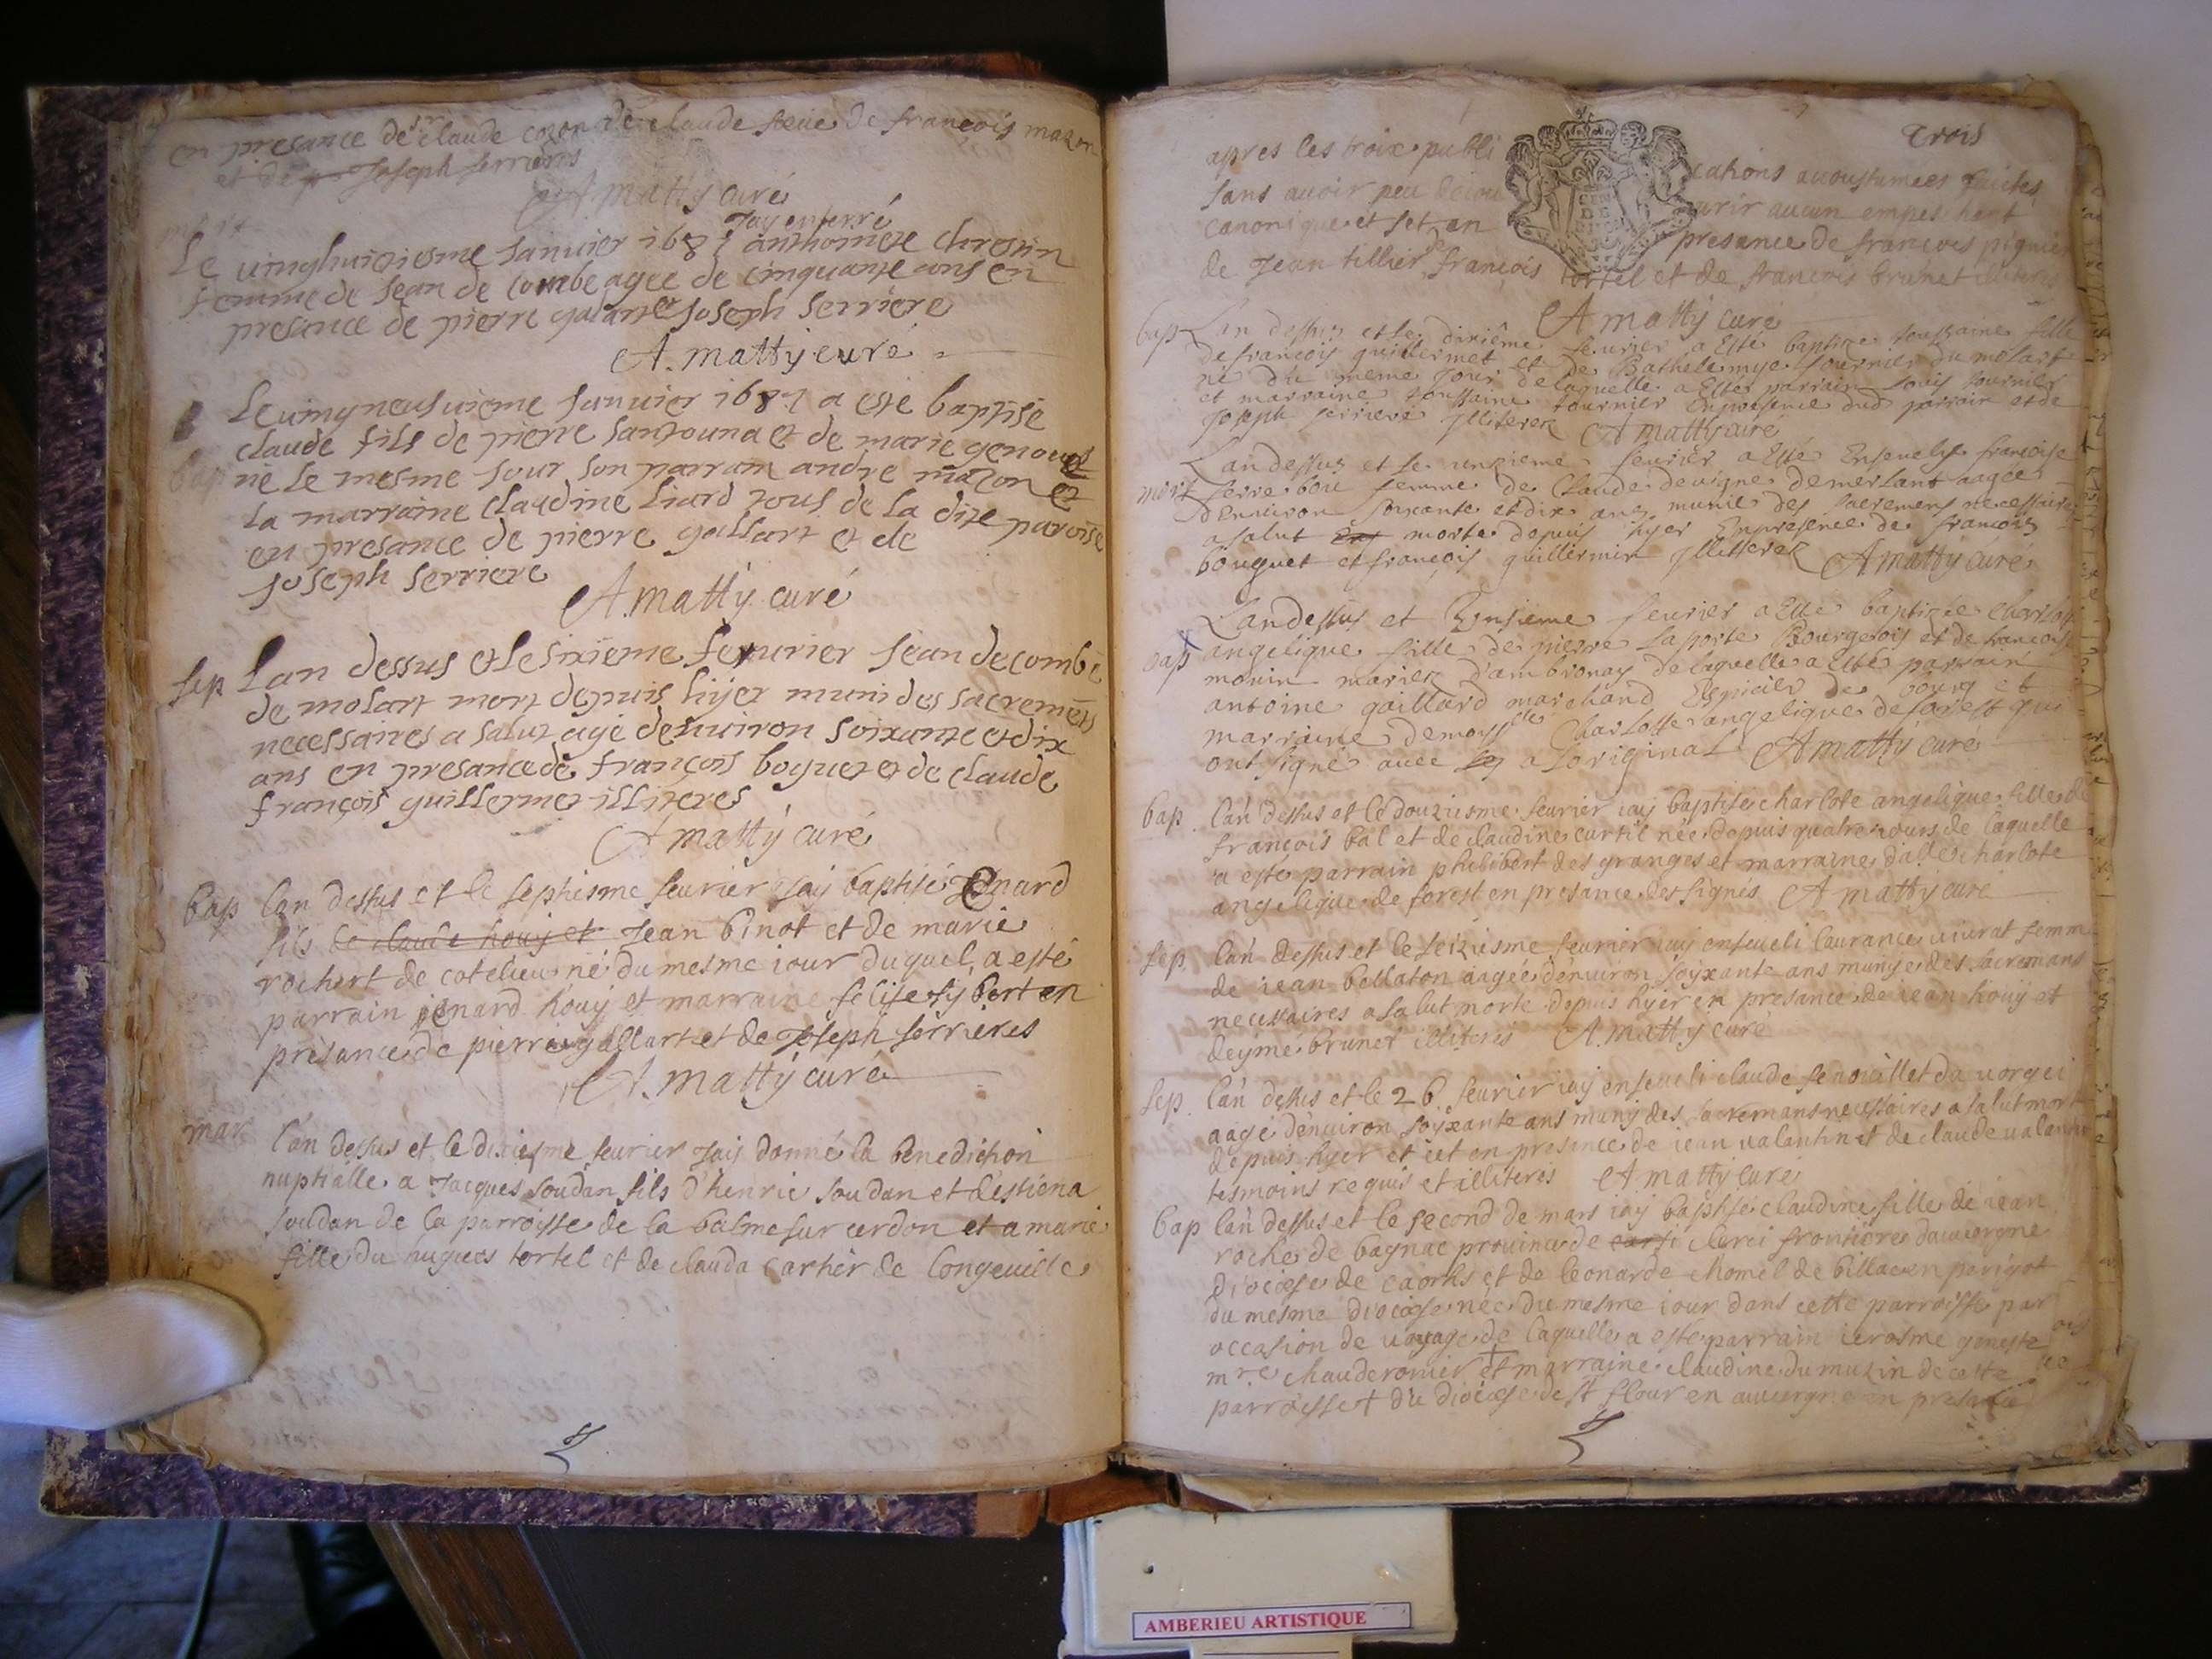 en presance de sr claude cozon de claude feue de françois mazon
et de Joseph serrieres
A matty curé
Jay enterré
Le vinghuitiesme Januier 1687 anthoinete chrestin
femme de Jean de combe agee de cinquante ans en
presance de pierre galart et Joseph serriere
A. matty curé
Le vingneufuieme Januier 1687 a esté baptisé
bap
claude fils de pierre santouna et de marie genoud
né le mesme Jour son parrain andre mazon et
la marraine claudine liard tous de la dite paroisse
en presance de pierre gallart et de
Joseph serriere
A. matty curé
sep Lan dessus et le sixieme feuurier Jean de combe
de molart mort depuis hijer muni des sacremets
necessaires a salut agé denuiron soixante et dix
ans en presance de françois boquet et de claude
françois guillermet illiteres
A matty curé
bap lan dessus et le septiesme feurier Jaij baptisé Renard
fils de claude houij et Jean binot et de marie
rochert de cotelieu né du mesme iour duquel a esté
parrain renard houij et marraine
presance de pierre gallart et de Joseph serrieres
A. matty curé
mar lan dessus et le dixiesme feurier Jaij donné la benediction
nuptialle a Jacques soudan fils d'henric soudan et destiena
souldan de la parroisse de la balme sur cerdon et a marie
fille du hugues tortel et de clauda cartier de longeuille
Trois
apres les troix publications acoustumees faictes
sans auoir peu decouurir aucun empeschent
canonique et set en presance de françois pignier
de Jean tillier françois tortel et de francois brunet
A matty curé
bap Lan dessus et le dixiême feurier a Esté baptizé toussaine fille
de françois guillermet et de Bathelemye fournier du molart
né du meme Jour de laquelle a Esté parrain louis fournier
et marraine toussaine fournier En presence dud parrain et de
Joseph serriere Jlliterez A matty curé
Lan dessus et le unzieme feurier a Esté Enseuelye francoise
mort serre boii femme de Claude deuigne de merlant aagee
denuiron soixante et dix ans munie des sacremens necessaires
a salut Est morte depuis hyer Enpresence de francois
bouquet et françois guillermin Jllitterez A matty curé
Lan dessus et Unsieme feurier a Esté baptizée charlotte
bap angelique fille de pierre laporte Bourgeois et de francoise
mouin mariez d'ambronay de laquelle a Esté parrain
antoine gaillard marchand Espicier de bourg et
marraine demoyselle Charlotte angelique deforest qui
ont signé auec a loriginal A matty curé
bap lan dessus et le douziesme feurier iaij baptisé charlote angelique fille de
françois bal et de claudine curtil née depuis quatre iours de laquelle
a esté parrain philibert des granges et marraine dalle charlote
angelique de forest en presance des signés A matty curé
sep lan dessus et le seiziesme feurier iaij enseueli laurance uiurat femme
de iean bellaton aagée denuiron soixante ans munije des sacremans
necessaires a salut morte depuis hyer en presance de iean houij et
deyme brunet illiteres A. matty curé
sep lan dessus et le 26 feurier iaij enseueli claude fenoüillet da uorgei
aagé denuiron soixante ans munij des sacremans necessaires a salut mort
depuis hyer et cet en presance de iean ualantin et de claude ualantin
tesmoins requis et illiteres A matty curé
bap lan dessus et le second de mars iaij baptisé claudine fille de iean
roche de bagnac prouince de carsi clerci frontiere dauuergne
diocæse de caorhs et de leonarde chomel de billac en perigot
du mesme diocæse née du mesme iour dans cette parroisse par
occasion de uoyage de laquelle a esté parrain ierosme geneste
mre chauderonier et marraine claudine dumuzin de cette
parroisse + du diocæse de st flour en auuergne en presance
AMBERIEU ARTISTIQUE